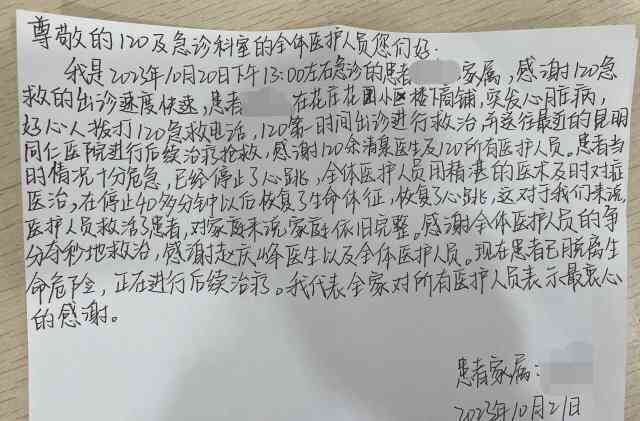 尊敬的120及急诊科室的全体医护人员您们好:
我是2023年10月20日下午13:00左右急诊的患者 家属，感谢120急
救的出诊速度快速，患者 在花庄花园小区楼下商铺，突发心脏病，
好心人拨打120急救电话，120第一时间出诊进行救治，并送往最近的昆明
同仁医院进行后续治疗抢救，感谢120余清某医生及120所有医护人员。患者当
时情况十分危急，已经停止了心跳，全体医护人员用精湛的医术及时对症
医治，在停止40多分钟以后恢复了生命体征，恢复了心跳，这对于我们来说，
医护人员救活了患者，对家庭来说，家庭依旧完整。感谢全体医护人员的争
分夺秒地救治，感谢赵庆峰医生以及全体医护人员。现在患者已脱离生
命危险，正在进行后续治疗。我代表全家对所有医护人员表示最衷心
的感谢。
患者家属:
2023年10月21日